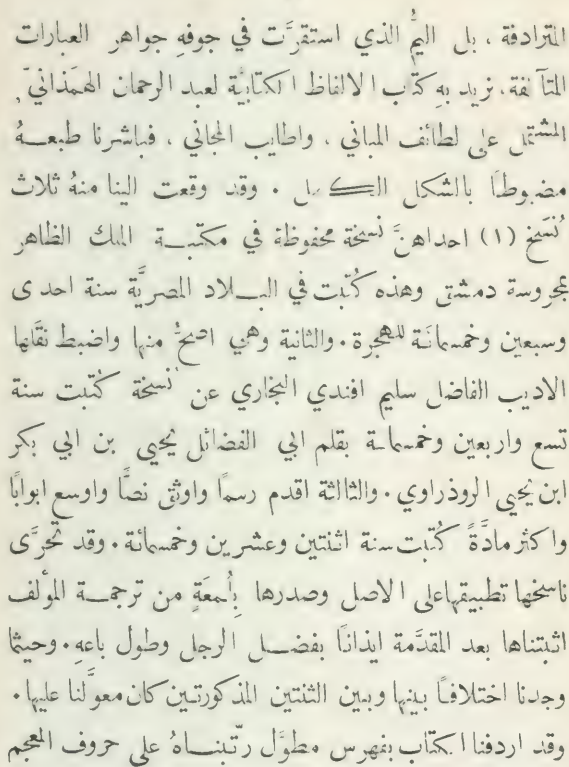 المترادفة ، بل اليمُّ الذي استقرَّت في جوفهِ جواهر العبارات
المتآلفة، نريد بهِ كتاب الالفاظ الكتابيَّة لعبد الرحمان الهمَذانيّ
المشتمل على لطائف المباني ، واطايب المجاني ، فباشرنا طبعهُ
مضبوطاً بالشكل الكامل . وقد وقعت الينا منهُ ثلاث
نُسَخ (١) احداهنَّ نسخة محفوظة في مكتبة الملك الظاهر
بمحروسة دمشق وهذه كُتبت في البلاد المصريَّة سنة احدى
وسبعين وخمسمائة للهجرة . والثانية وهي اصحّ منها واضبط نقلها
الاديب الفاضل سليم افندي البخاري عن نسخة كُتبت سنة
تسع واربعين وخمسمائة بقلم ابي الفضائل يحيى بن ابي بكر
ابن يحيى الروذراوي . والثالثة اقدم رسماً واوثق نصًّا واوسع ابواباً
واكثر مادَّةً كُتبت سنة اثنتين وعشرين وخمسمائة . وقد تحرَّى
ناسخها تطبيقها على الاصل وصدرها بلُمعَةٍ من ترجمة المؤلف
اثبتناها بعد المقدَّمة ايذاناً بفضل الرجل وطول باعهِ . وحيثما
وجدنا اختلافاً بينها وبين الثنتين المذكورتين كان معوَّلنا عليها .
وقد اردفنا الكتاب بفهرس مطوَّل رتَّبناهُ على حروف المعجم